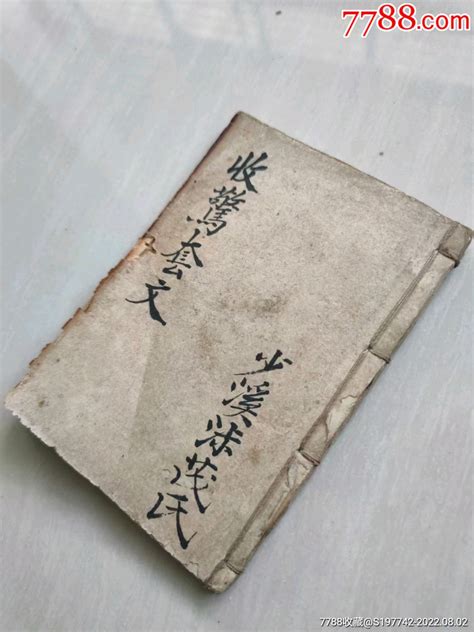 7788.com
收驚套文
少溪
茂氏
7788收藏@S197742-2022.08.02